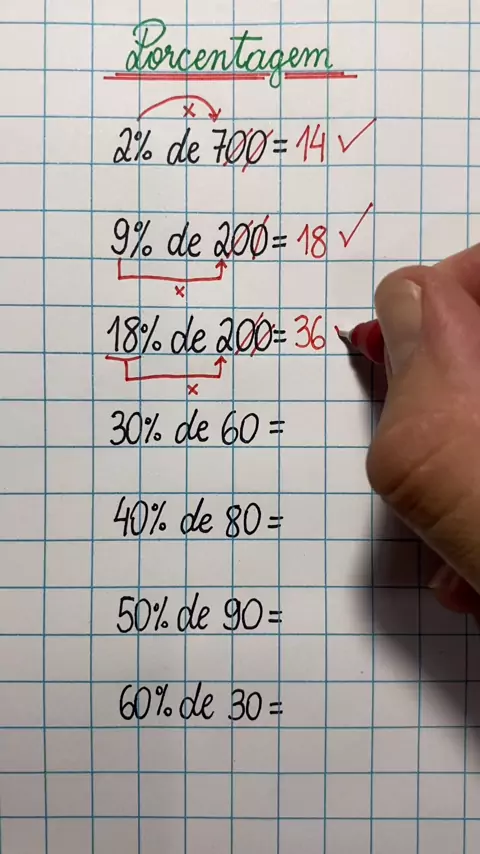 Porcentagem
x
2% de 700 = 14 ✓
9% de 200 = 18 ✓
x
18% de 200 = 36
x
30% de 60 =
40% de 80 =
50% de 90 =
60% de 30 =